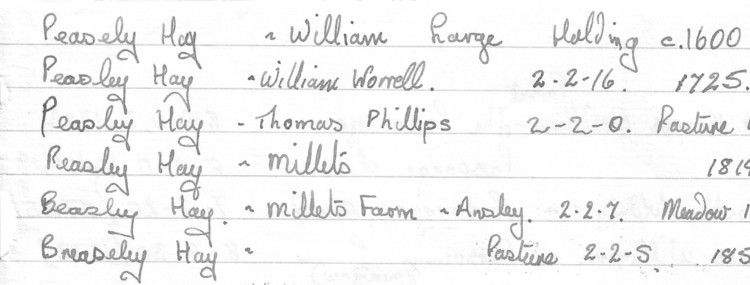 Peasely Hay ~ William Large Holding c.1600
Peasley Hay - William Worrell. 2-2-16. 1725.
Peasley Hay - Thomas Phillips 2-2-0. Pasture
Reasley Hay ~ Millets 181
Beasley Hay. ~ Millets Farm ~ Ansley. 2.2.7. Meadow 1
Breaseley Hay ~ Pasture 2-2-5. 185